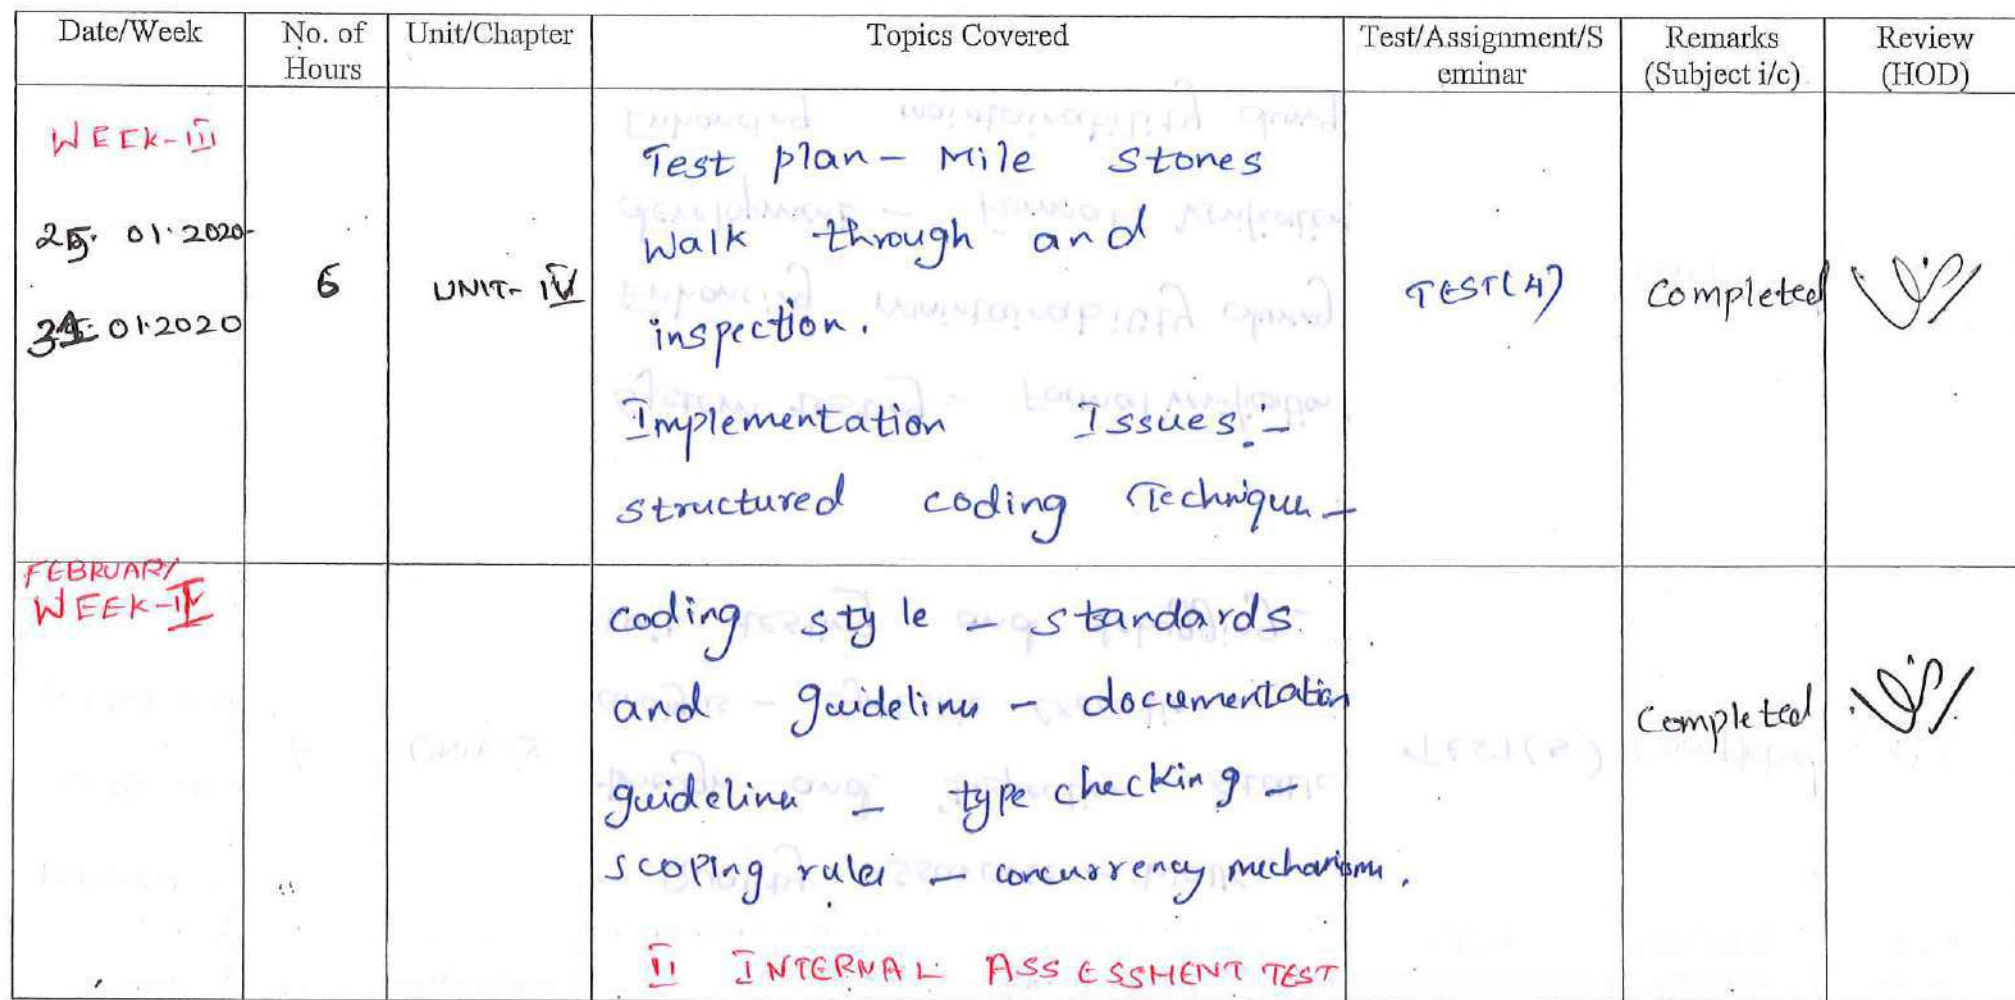 Date/Week No. of Hours Unit/Chapter Topics Covered Test/Assignment/Seminar Remarks (Subject i/c) Review (HOD)
WEEK-III
25. 01.2020-
31. 01.2020
6
UNIT- IV
Test plan - Mile Stones
Walk through and
inspection.
Implementation Issues:-
structured coding Technique -
TEST(4)
Completed
FEBRUARY
WEEK-IV
coding style - standards
and guideline - documentation
guideline - type checking -
scoping rules - concurrency mechanism.
II INTERNAL ASSESSMENT TEST
Completed